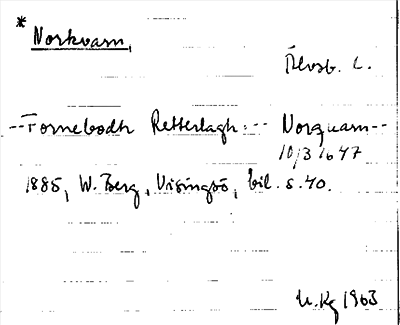 *
Norkvarn,
Älvsb. l.
--Tornebodh Retterlagh.-- Norquarn--
10/3 1647
1885, W. Berg, Visingsö, bil. s. 40.
U.Kg 1963